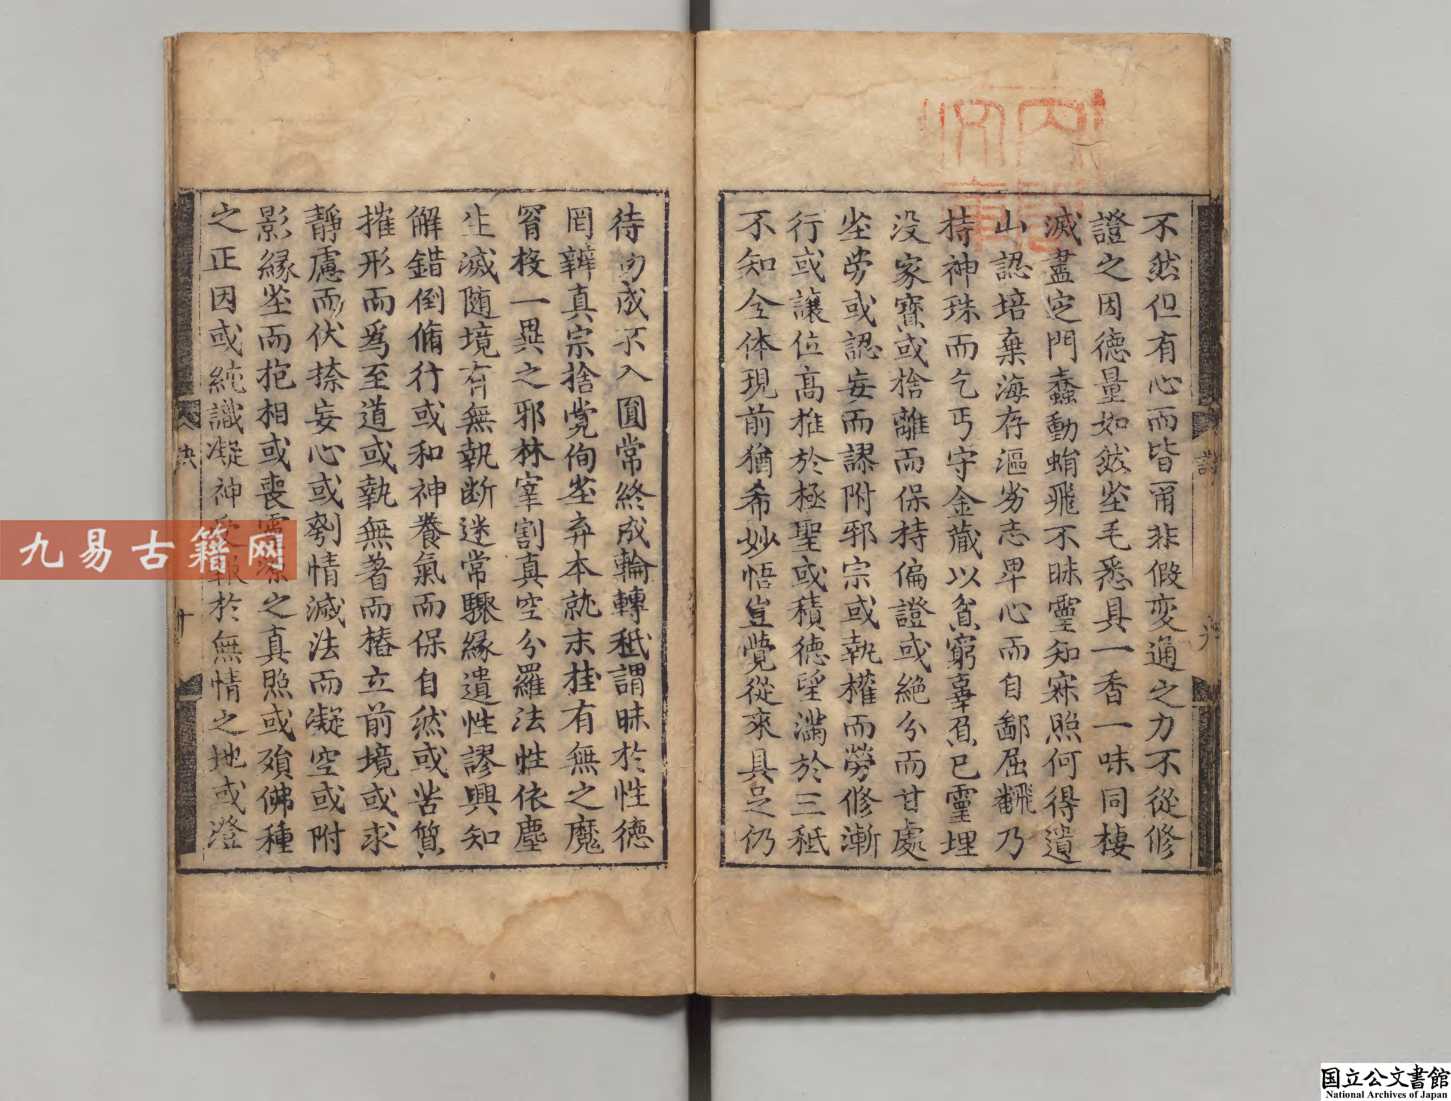 不然但有心而皆爾非假变通之力不從修
證之因德量如然坐毛悉具一香一味同棲
滅盡㝎門蠢動蛸飛不昧靈知寂照何得遺
山認培棄海存漚劣志卑心而自鄙屈飜乃
持神珠而乞丐守金藏以貧窮辜負已靈埋
没家寳或捨離而保持偏證或絶分而甘處
坐劳或認妄而謬附邪宗或執權而勞修漸
行或讓位髙推於極聖或積德望滿於三秖
不知全体現前猶希妙悟豈覺從來具足仍
待功成不入圎常終成輪轉秖謂昧於性德
罔辨真宗捨覺徇塵弃本就末挂有無之魔
罥投一異之邪林宰割真空分羅法性依塵
生滅随境有無執断迷常驟緣遺性謬興知
解錯倒脩行或和神養氣而保自然或苦質
摧形而爲至道或執無著而樁立前境或求
靜慮而伏捺妄心或刳情滅法而凝空或附
影緣塵而抱相或喪靈源之真照或殞佛種
之正因或純識凝神受報於無情之地或澄
九易古籍网
国立公文書館
National Archives of Japan